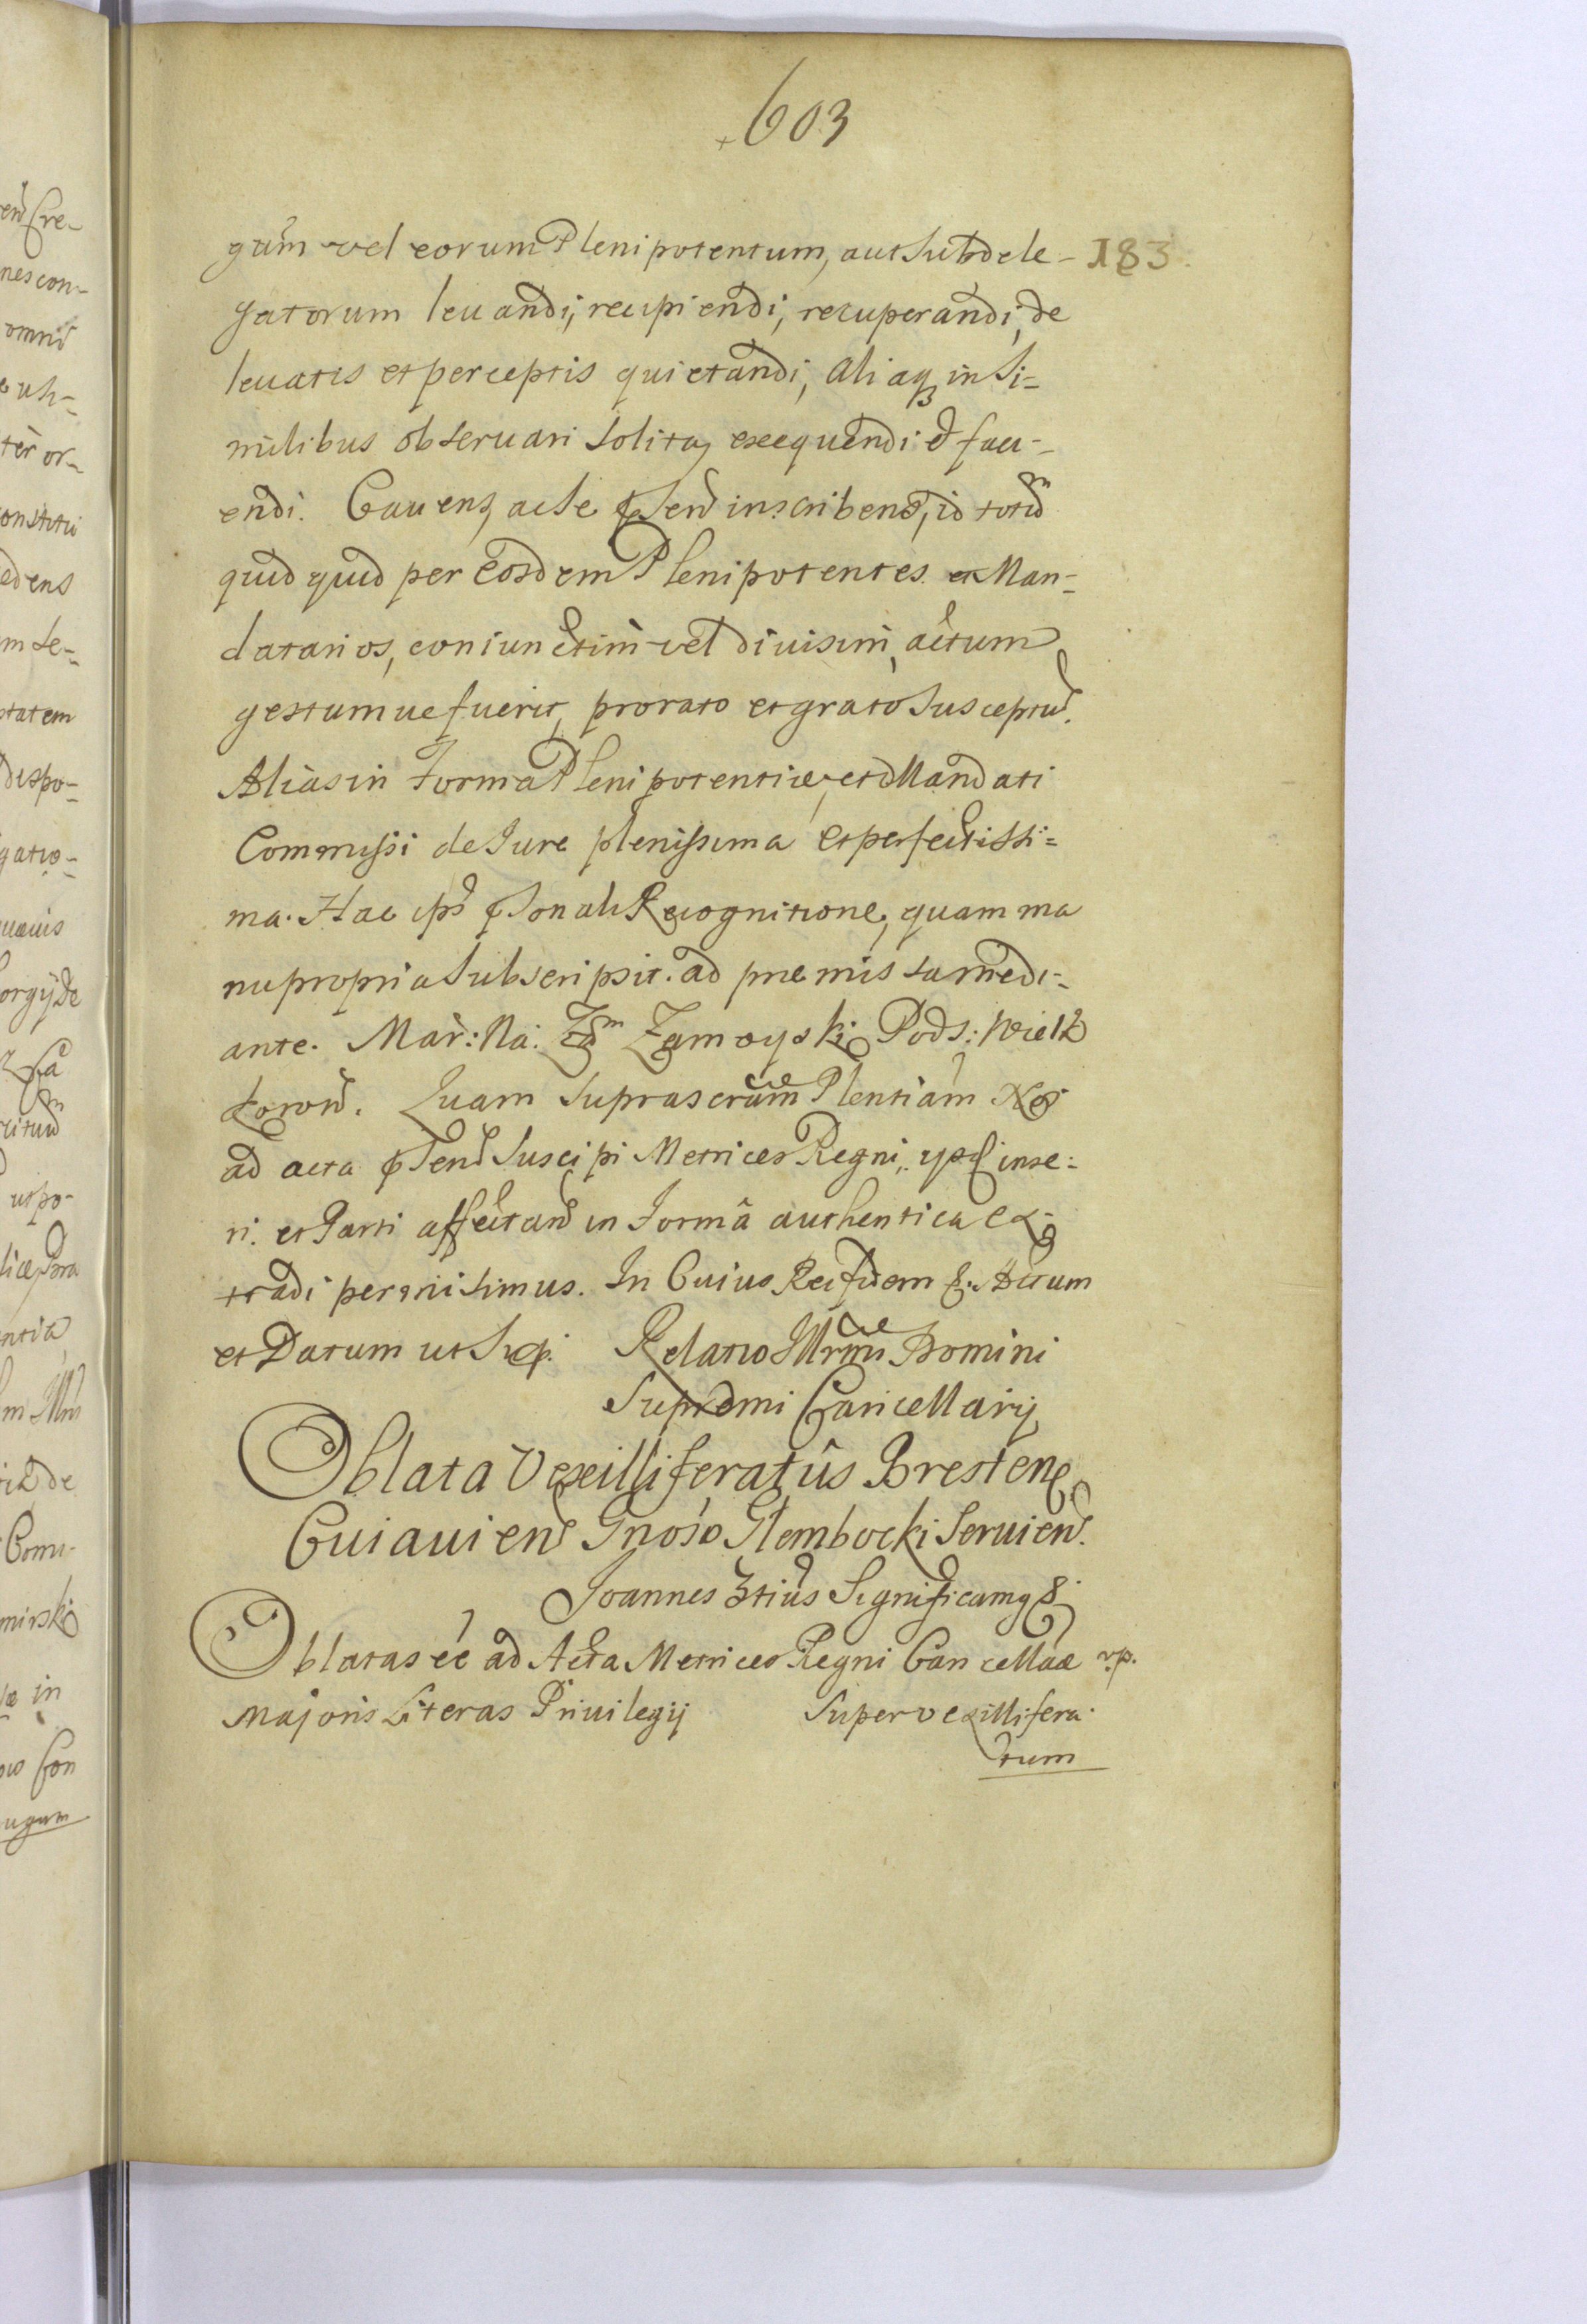 603
183
gum vel eorum Plenipotentum, aut Subdele-
gatorum levandi, recipiendi, recuperandi, de
levatis et perceptis quietandi, aliaq in Si-
milibus observari solita, exequendi et faci-
endi. Cavens, ac se inscribens, id totum
quid quid per eosdem Plenipotentes et Man-
datarios, coniunctim vel divisim, actum
gestumve fuerit, pro rato et grato Suscepturũ.
Alias in Forma Plenipotentiæ, et Mandati
Commissi de Jure plenissima et perfectissi-
ma. Hac Recognitione, quam ma
nu propria Subscripsit. ad præmissa medi-
ante. Mar: Na: Zamoyski Pods: Wielk
Koron. Quam Suprascram Plentiam Nos
ad acta Suscipi Metrices Regni, inse-
ri. et Parti affectan in Forma authentica ex-
tradi permisimus. In Cuius Rei fidem &. Actum
et Datum ut Relatio Illrmi Domini
Supremi Cancellarij
Oblata Vexilliferatûs Bresten
Cuiavien Gnoso Glembocki Servien.
Joannes 3tius Significamq &
Oblatas eê ad Acta Metrices Regni Cancellaæ
Majoris Literas Privilegij Super vexillifera
tum